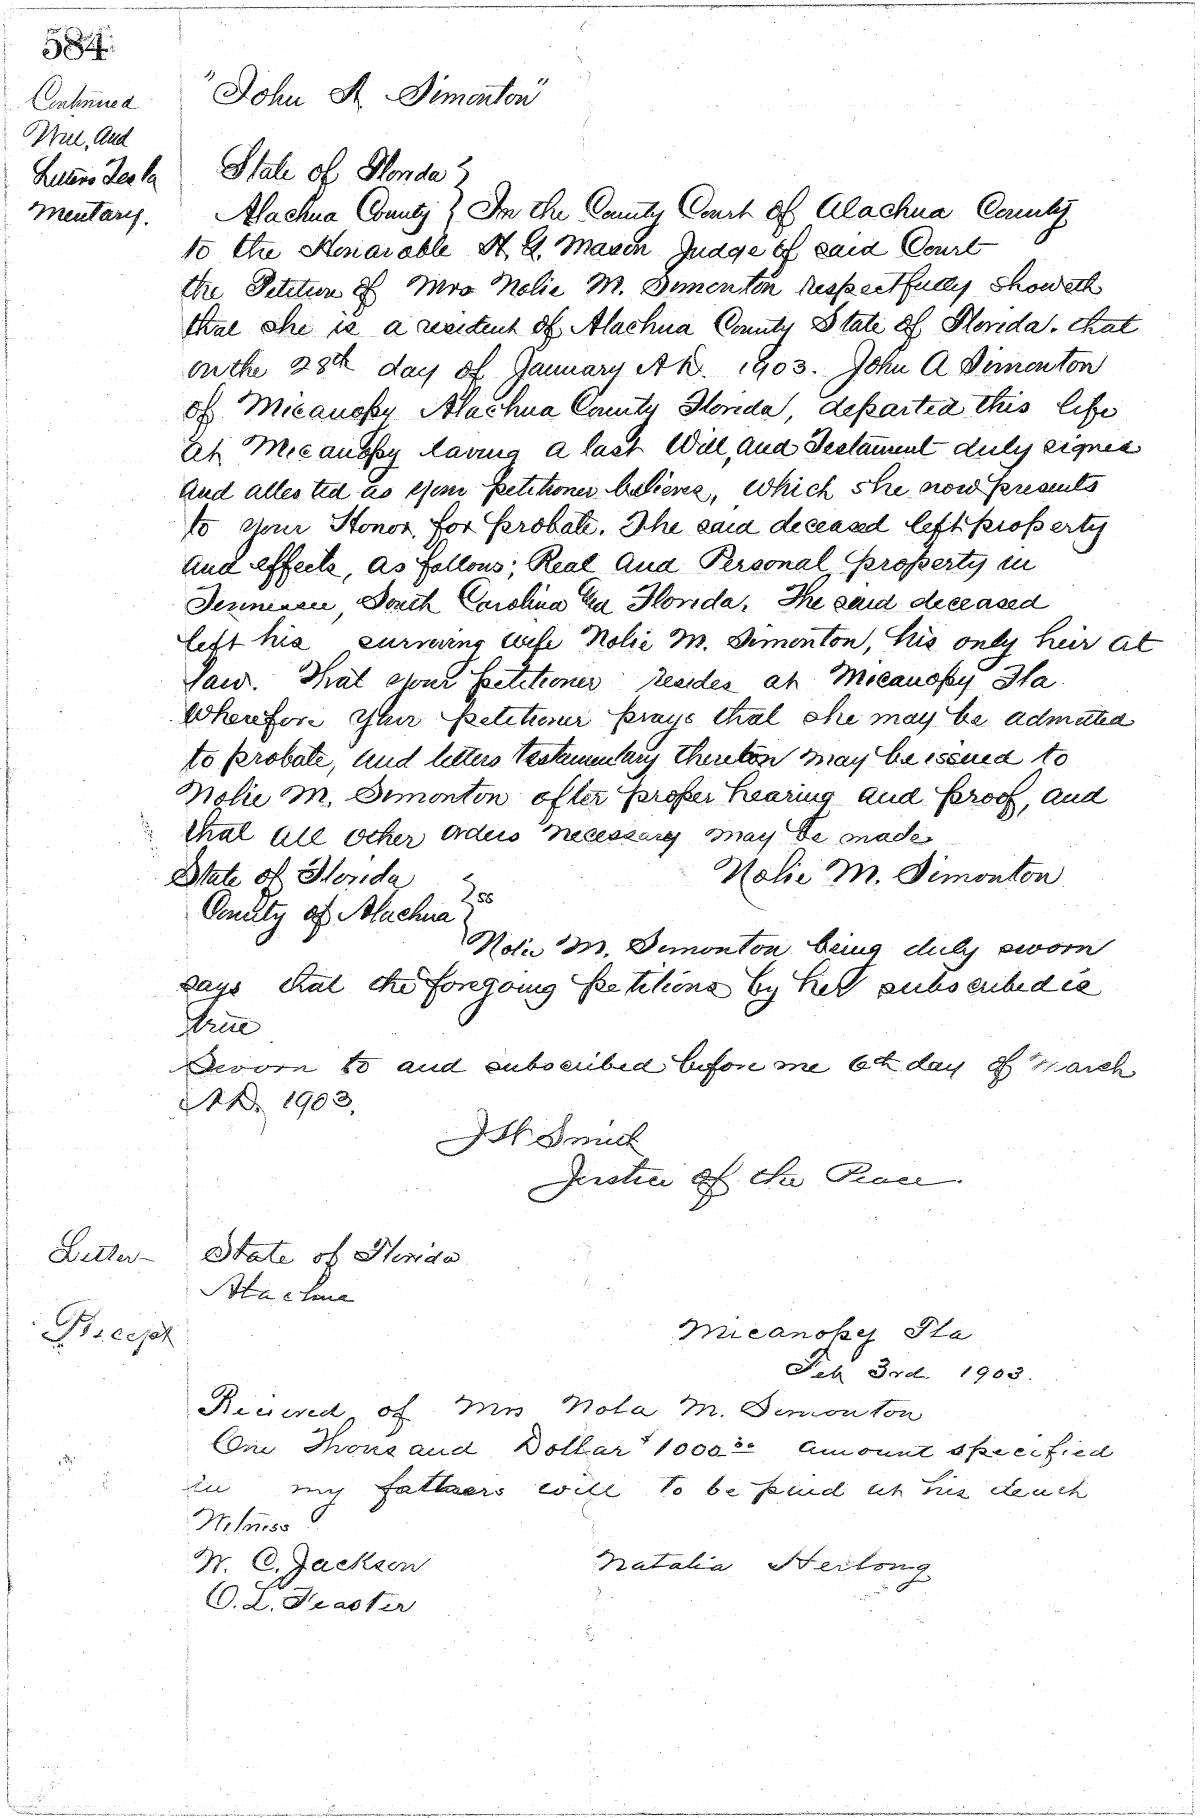 584
Continued
Will, and
Letters Testa
mentary.
"John A. Simonton"
State of Florida }
Alachua County } In the County Court of Alachua County
to the Honarable H. G. Mason Judge of said Court
the Petition of Mrs Nolie M. Simonton respectfully showeth
that she is a resident of Alachua County State of Florida. that
on the 28th day of January A.D. 1903. John A Simonton
of Micanopy Alachua County Florida, departed this life
at Micanopy leaving a last Will, and Testament duly signed
and attested as your petitioner believes, which she now presents
to your Honor for probate. The said deceased left property
and effects, as follows; Real and Personal property in
Tennessee, South Carolina and Florida. The said deceased
left his surviving wife Nolie M. Simonton, his only heir at
law. That your petitioner resides at Micanopy Fla
Wherefore your petitioner prays that she may be admitted
to probate, and letters testamentary thereton may be issued to
Nolie M. Simonton after proper hearing and proof, and
that all other orders necessary may be made
Nolie M. Simonton
State of Florida }
County of Alachua } ss
Nolie M. Simonton being duly sworn
says that the foregoing petitions by her subscribed is
true
Sworn to and subscribed before me 6th day of March
A.D. 1903.
J H Smith
Justice of the Peace.
Letter-
State of Florida
Alachua
Receipt
Micanopy Fla
Feb 3rd. 1903.
Recieved of Mrs Nola M. Simonton
One Thousand Dollar $1000.00 amount specified
in my fathers will to be paid at his death
Witness
W. C. Jackson
Natalia Herlong
O. L. Feaster